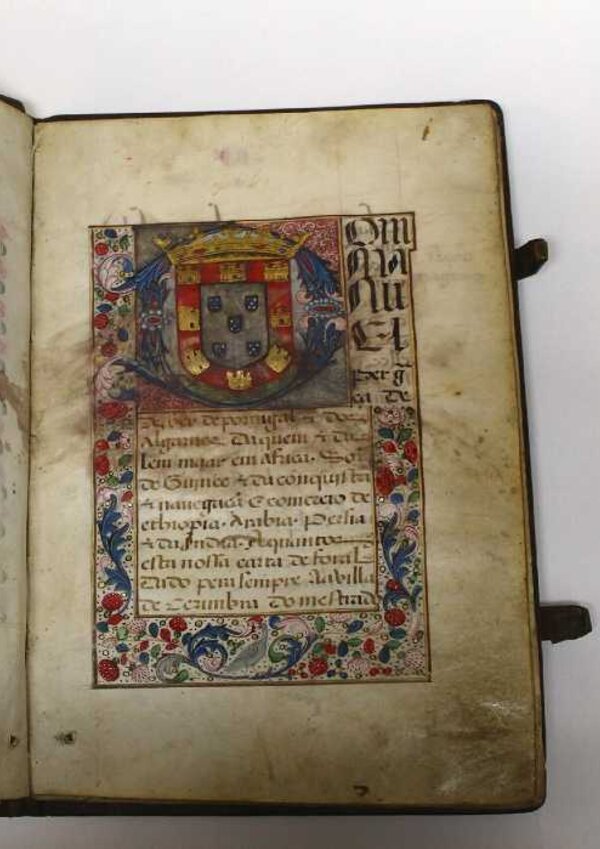 Dom
Ma
nu
el
per g
ça de
ds Rey de portugal & dos
Algarues. Daquem & da
lem maar em africa. Sor
de Guinee & da conquista
& nauegaçã & comercio de
ethiopia. Arabia. Persia
& da India. A quantos
esta nossa carta de foral
dado pera sempre aa villa
de Cezimbra do mestrado